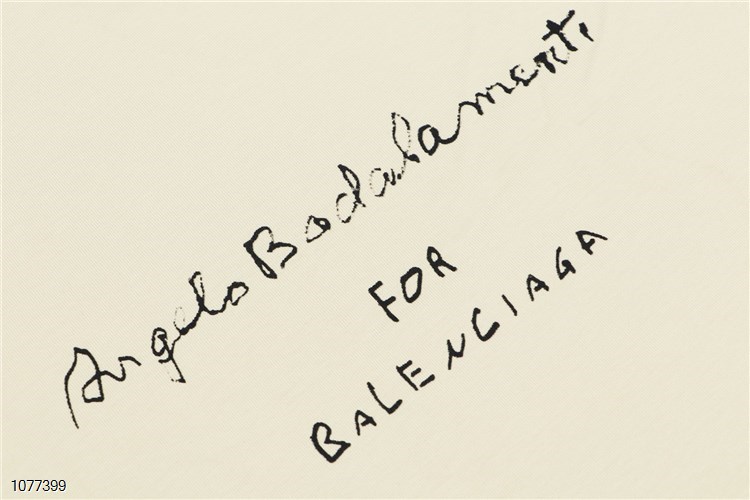 Angelo Badalamenti
FOR
BALENCIAGA
1077399